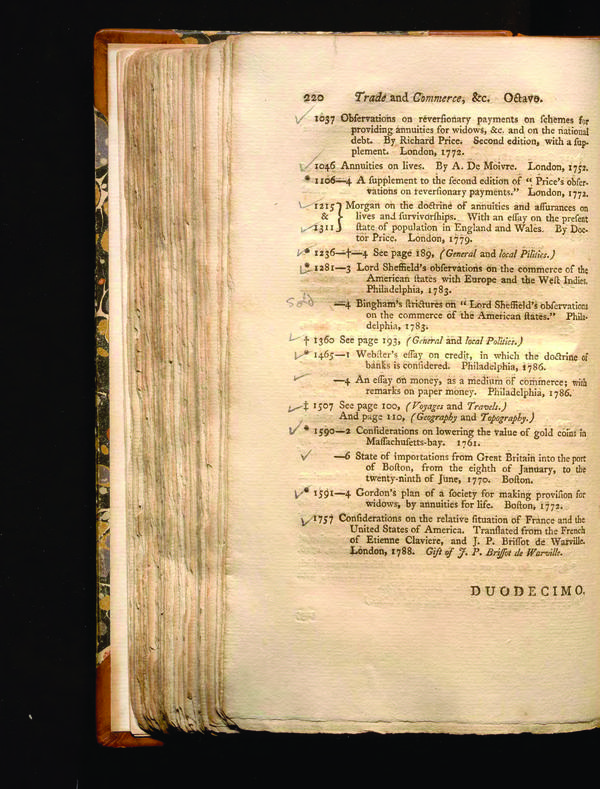 220 Trade and Commerce, &c. Octavo.
1037 Observations on reversionary payments on schemes for
providing annuities for widows, &c. and on the national
debt. By Richard Price. Second edition, with a sup-
plement. London, 1772.
1046 Annuities on lives. By A. De Moivre. London, 1752.
* 1106—4 A supplement to the second edition of " Price's obser-
vations on reversionary payments." London, 1772.
1215 } Morgan on the doctrine of annuities and assurances on
& lives and survivorships. With an essay on the present
1311 state of population in England and Wales. By Doc-
tor Price. London, 1779.
* 1236—†—4 See page 189, (General and local Politics.)
* 1281—3 Lord Sheffield's observations on the commerce of the
American states with Europe and the West Indies.
Philadelphia, 1783.
Sold —4 Bingham's strictures on " Lord Sheffield's observations
on the commerce of the American states." Phila-
delphia, 1783.
† 1360 See page 193, (General and local Politics.)
* 1465—1 Webster's essay on credit, in which the doctrine of
banks is considered. Philadelphia, 1786.
—4 An essay on money, as a medium of commerce; with
remarks on paper money. Philadelphia, 1786.
‡ 1507 See page 100, (Voyages and Travels.)
And page 110, (Geography and Topography.)
* 1590—2 Considerations on lowering the value of gold coins in
Massachusetts-bay. 1761.
—6 State of importations from Great Britain into the port
of Boston, from the eighth of January, to the
twenty-ninth of June, 1770. Boston.
* 1591—4 Gordon's plan of a society for making provision for
widows, by annuities for life. Boston, 1772.
1757 Considerations on the relative situation of France and the
United States of America. Translated from the French
of Etienne Claviere, and J. P. Brissot de Warville.
London, 1788. Gift of J. P. Brissot de Warville.
DUODECIMO.